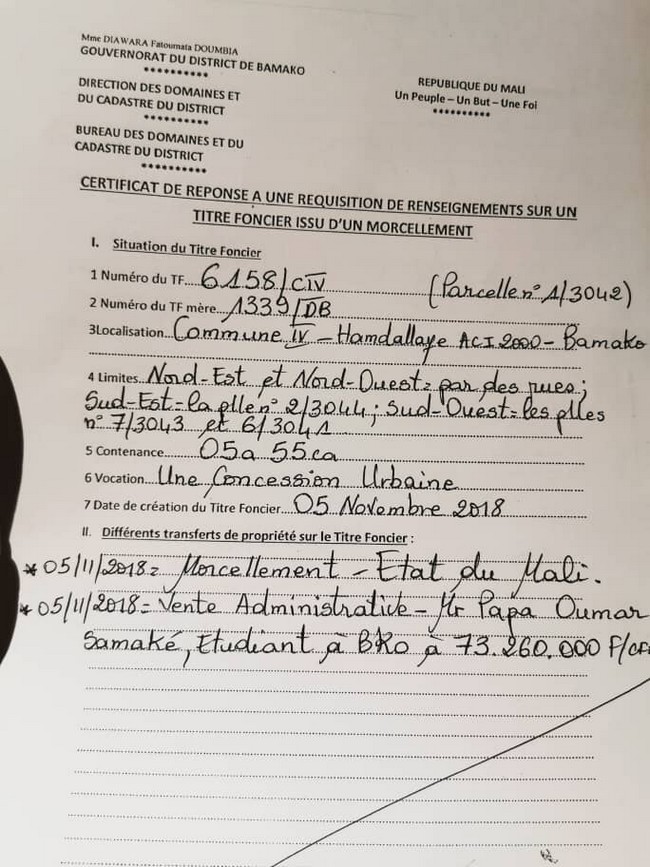 Mme DIAWARA Fatoumata DOUMBIA
GOUVERNORAT DU DISTRICT DE BAMAKO
**********
DIRECTION DES DOMAINES ET
DU CADASTRE DU DISTRICT
**********
BUREAU DES DOMAINES ET DU
CADASTRE DU DISTRICT
**********
REPUBLIQUE DU MALI
Un Peuple – Un But – Une Foi
**********
CERTIFICAT DE REPONSE A UNE REQUISITION DE RENSEIGNEMENTS SUR UN
TITRE FONCIER ISSU D'UN MORCELLEMENT
I. Situation du Titre Foncier
1 Numéro du TF...6158/CIV (Parcelle n° 1/3042)
2 Numéro du TF mère...1339/DB
3Localisation...Commune IV – Hamdallaye ACI 2000 – Bamako
4 Limites...Nord-Est et Nord-Ouest = par des rues ;
Sud-Est = la plle n° 2/3044 ; Sud-Ouest = les plles
n° 7/3043 et 6/3041
5 Contenance...05a 55ca
6 Vocation...Une Concession Urbaine
7 Date de création du Titre Foncier...05 Novembre 2018
II. Différents transferts de propriété sur le Titre Foncier :
* 05/11/2018 = Morcellement – Etat du Mali.
* 05/11/2018 = Vente Administrative – Mr Papa Oumar
Samaké, Etudiant à BKo à 73.260.000 F/CFA